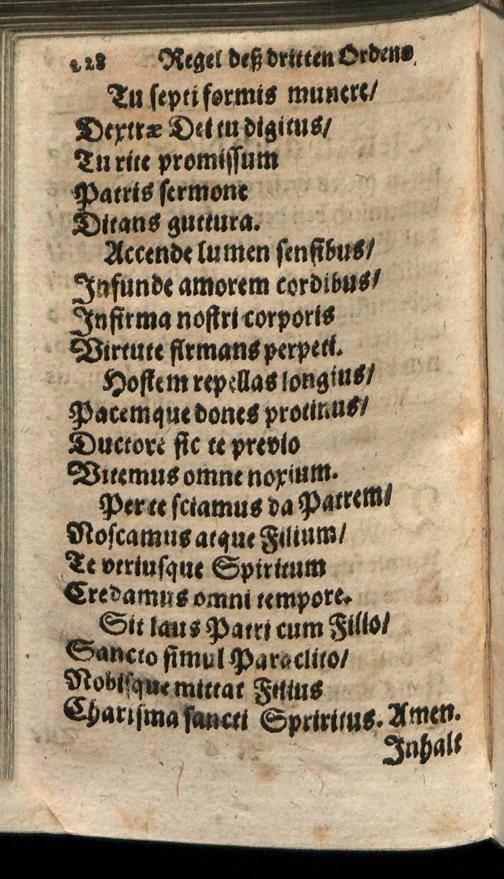 228 Regel deß dritten Ordens
Tu septiformis munere/
Dextræ Dei tu digitus/
Tu rite promissum
Patris sermone
Ditans guttura.
Accende lumen sensibus/
Infunde amorem cordibus/
Infirma nostri corporis
Virtute firmans perpeti.
Hostem repellas longius/
Pacemque dones protinus/
Ductore sic te previo
Vitemus omne noxium.
Per te sciamus da Patrem/
Noscamus atque Filium/
Te vtriusque Spiritum
Credamus omni tempore.
Sit laus Patri cum Filio/
Sancto simul Paraclito/
Nobisque mittat Filius
Charisma sancti Spriritus. Amen.
Inhalt